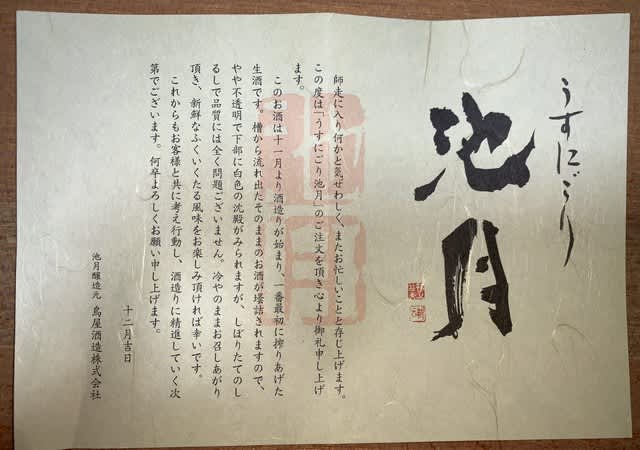 うすにごり
池月
師走に入り何かと気ぜわしく、またお忙しいことと存じ上げます。
この度は「うすにごり池月」のご注文を頂き心より御礼申し上げ
ます。
このお酒は十一月より酒造りが始まり、一番最初に搾りあげた
生酒です。槽から流れ出たそのままのお酒が壜詰されますので、
やや不透明で下部に白色の沈殿がみられますが、しぼりたてのし
るしで品質には全く問題ございません。冷やのままお召しあがり
頂き、新鮮なふくいくたる風味をお楽しみ頂ければ幸いです。
これからもお客様と共に考え行動し、酒造りに精進していく次
第でございます。何卒よろしくお願い申し上げます。
十二月吉日
池月醸造元 鳥屋酒造株式会社